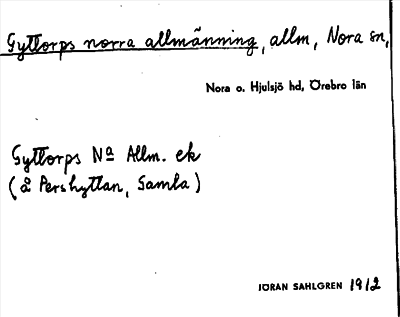 Gyttorps norra allmänning, allm, Nora sn,
Nora o. Hjulsjö hd, Örebro län
Gyttorps Na Allm. ek
(å Pershyttan, Samla)
JÖRAN SAHLGREN 1912